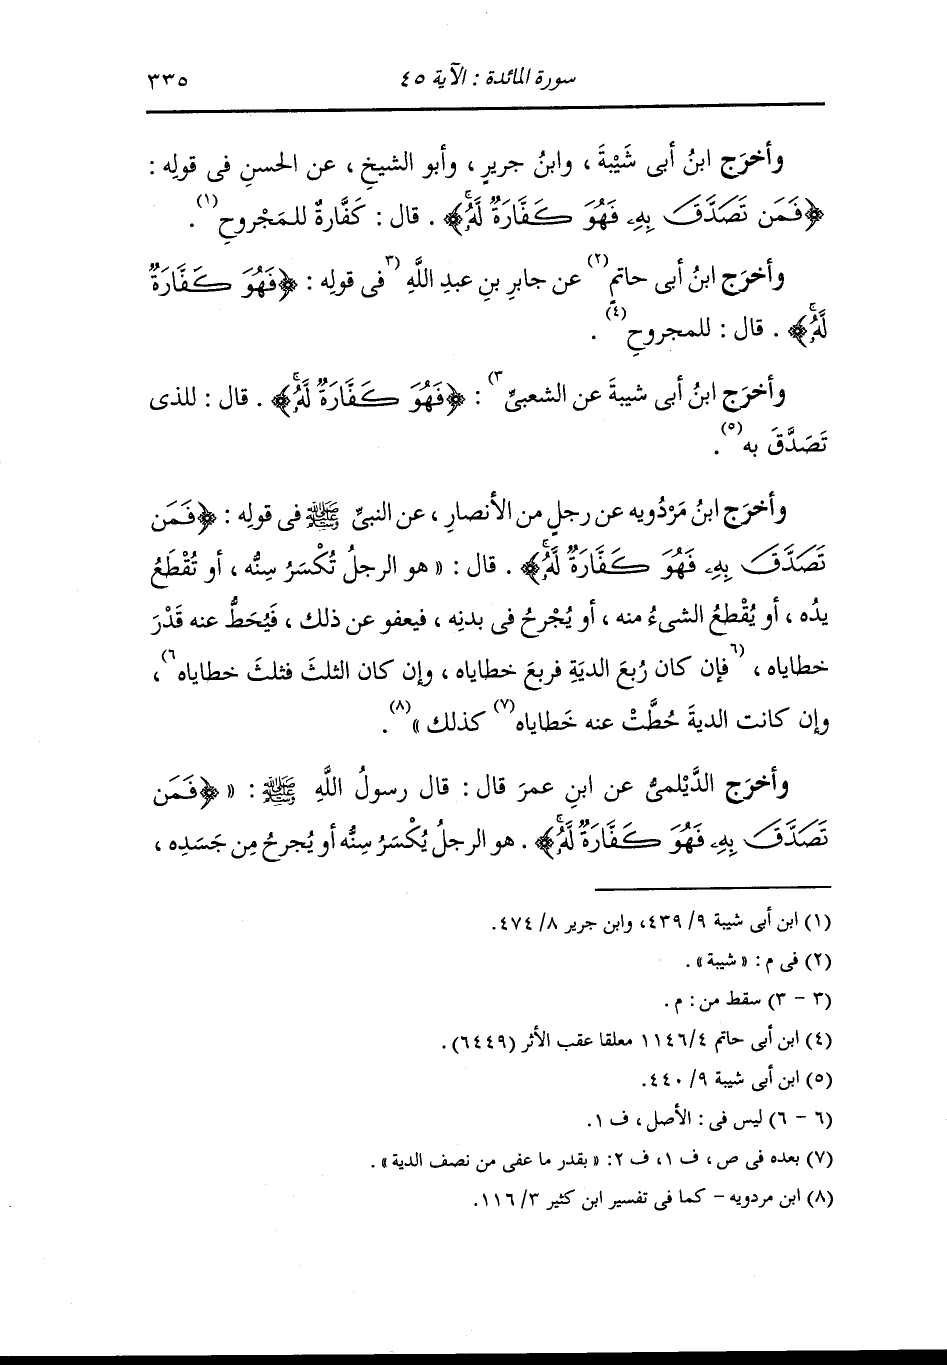 سورة المائدة : الآية ٤٥ ٣٣٥
وأخرَج ابنُ أبى شَيْبةَ ، وابنُ جريرٍ ، وأبو الشيخِ ، عن الحسنِ فى قولِه :
﴿فَمَن تَصَدَّقَ بِهِۦ فَهُوَ كَفَّارَةٌ لَّهُۥ﴾ . قال : كَفَّارةٌ للمَجْروحِ(١) .
وأخرَج ابنُ أبى حاتمٍ(٢) عن جابرِ بنِ عبدِ اللَّهِ (٣فى قولِه : ﴿فَهُوَ كَفَّارَةٌ
لَّهُۥ﴾ . قال : للمجروحِ(٤) .
وأخرَج ابنُ أبى شيبةَ عن الشعبىِّ٣) : ﴿فَهُوَ كَفَّارَةٌ لَّهُۥ﴾ . قال : للذى
تَصَدَّقَ به(٥) .
وأخرَج ابنُ مَرْدُويه عن رجلٍ من الأنصارِ ، عن النبىِّ ﷺ فى قولِه : ﴿فَمَن
تَصَدَّقَ بِهِۦ فَهُوَ كَفَّارَةٌ لَّهُۥ﴾ . قال : « هو الرجلُ تُكْسَرُ سِنُّه ، أو تُقْطَعُ
يدُه ، أو يُقْطعُ الشىءُ منه ، أو يُجْرحُ فى بدنِه ، فيعفو عن ذلك ، فَيُحَطُّ عنه قَدْرَ
خطاياه ، (٦فإن كان رُبعَ الديَةِ فربعَ خطاياه ، وإن كان الثلثَ فثلثَ خطاياه٦) ،
وإن كانت الديةَ حُطَّتْ عنه خَطاياه(٧) كذلك »(٨) .
وأخرَج الدَّيْلمىُّ عن ابنِ عمرَ قال : قال رسولُ اللَّهِ ﷺ : « ﴿فَمَن
تَصَدَّقَ بِهِۦ فَهُوَ كَفَّارَةٌ لَّهُۥ﴾ . هو الرجلُ يُكْسَرُ سِنُّه أو يُجرحُ مِن جَسَدِه ،
(١) ابن أبى شيبة ٩/ ٤٣٩، وابن جرير ٨/ ٤٧٤.
(٢) فى م : « شيبة » .
(٣ - ٣) سقط من : م .
(٤) ابن أبى حاتم ٤/ ١١٤٦ معلقا عقب الأثر (٦٤٤٩) .
(٥) ابن أبى شيبة ٩/ ٤٤٠.
(٦ - ٦) ليس فى : الأصل ، ف ١.
(٧) بعده فى ص ، ف ١، ف ٢: « بقدر ما عفى من نصف الدية » .
(٨) ابن مردويه - كما فى تفسير ابن كثير ٣/ ١١٦.